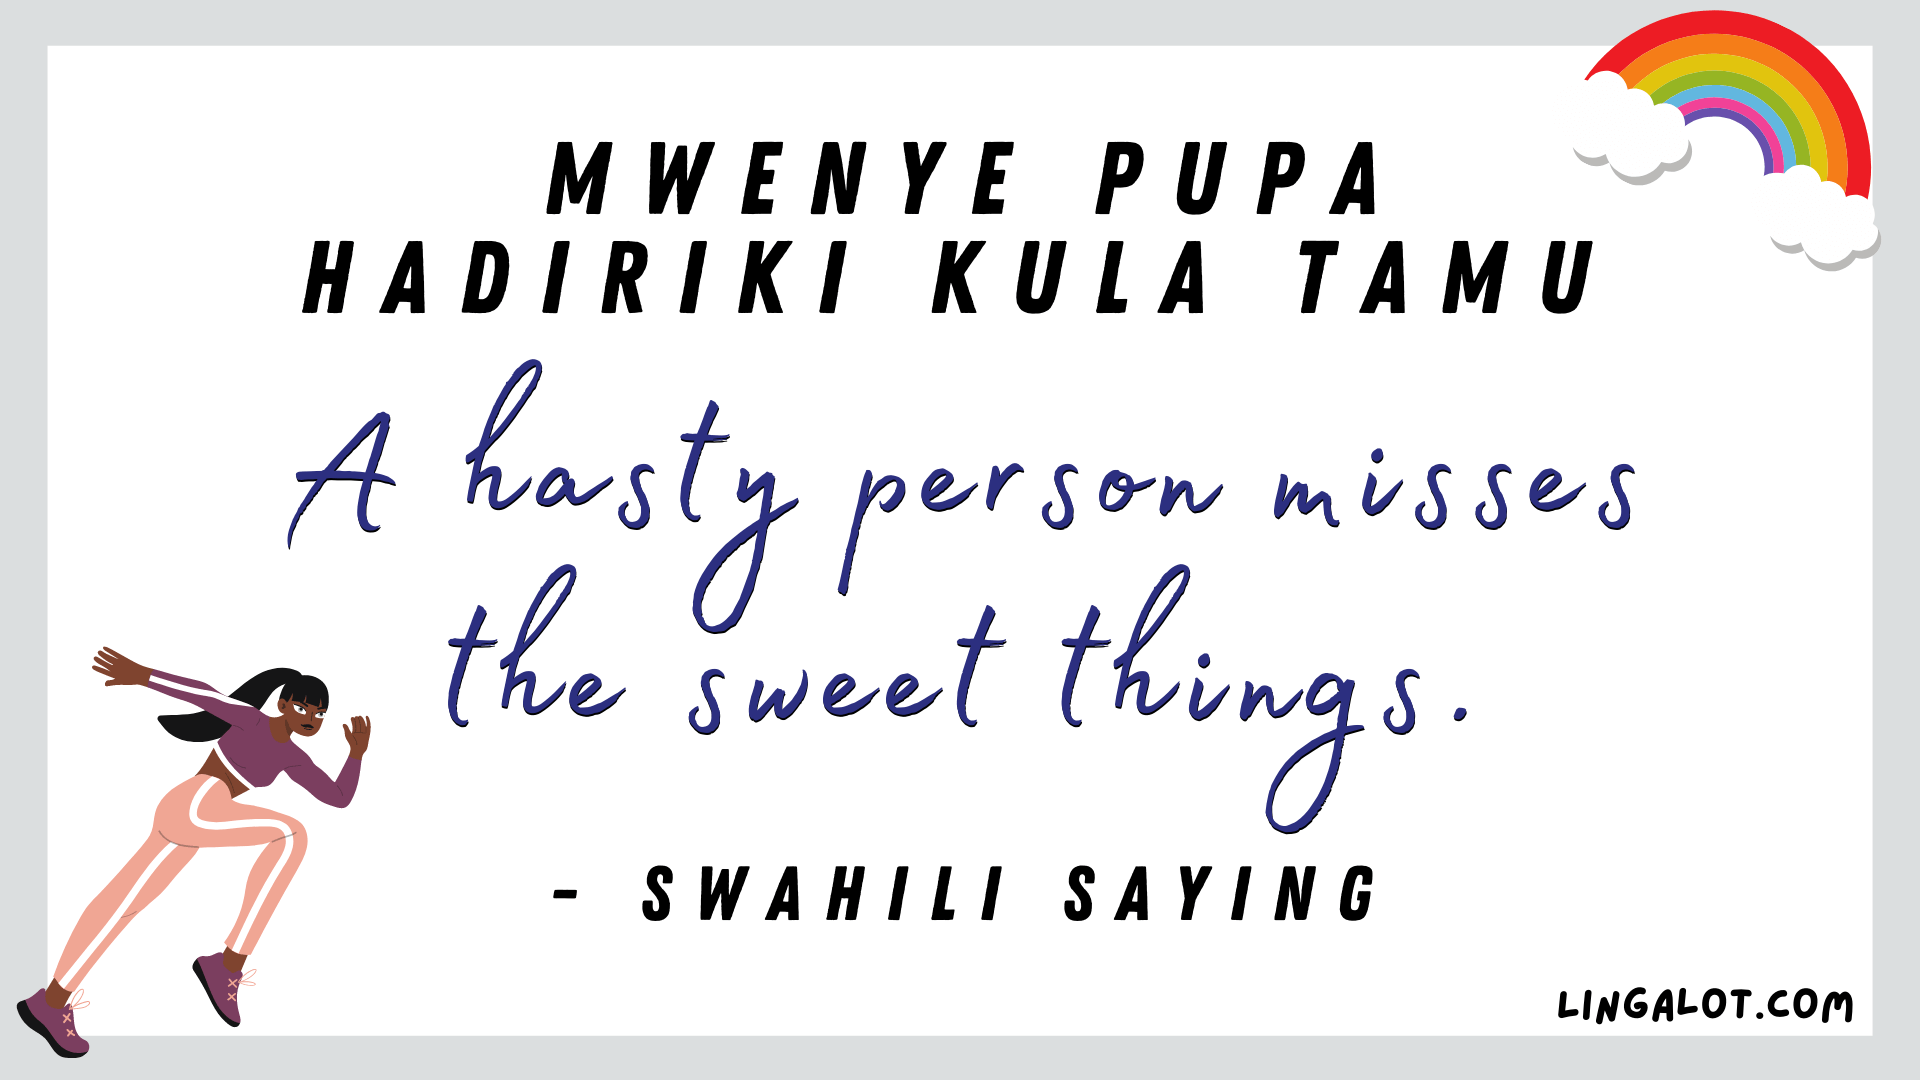 MWENYE PUPA
HADIRIKI KULA TAMU
A hasty person misses
the sweet things.
- SWAHILI SAYING
LINGALOT.COM